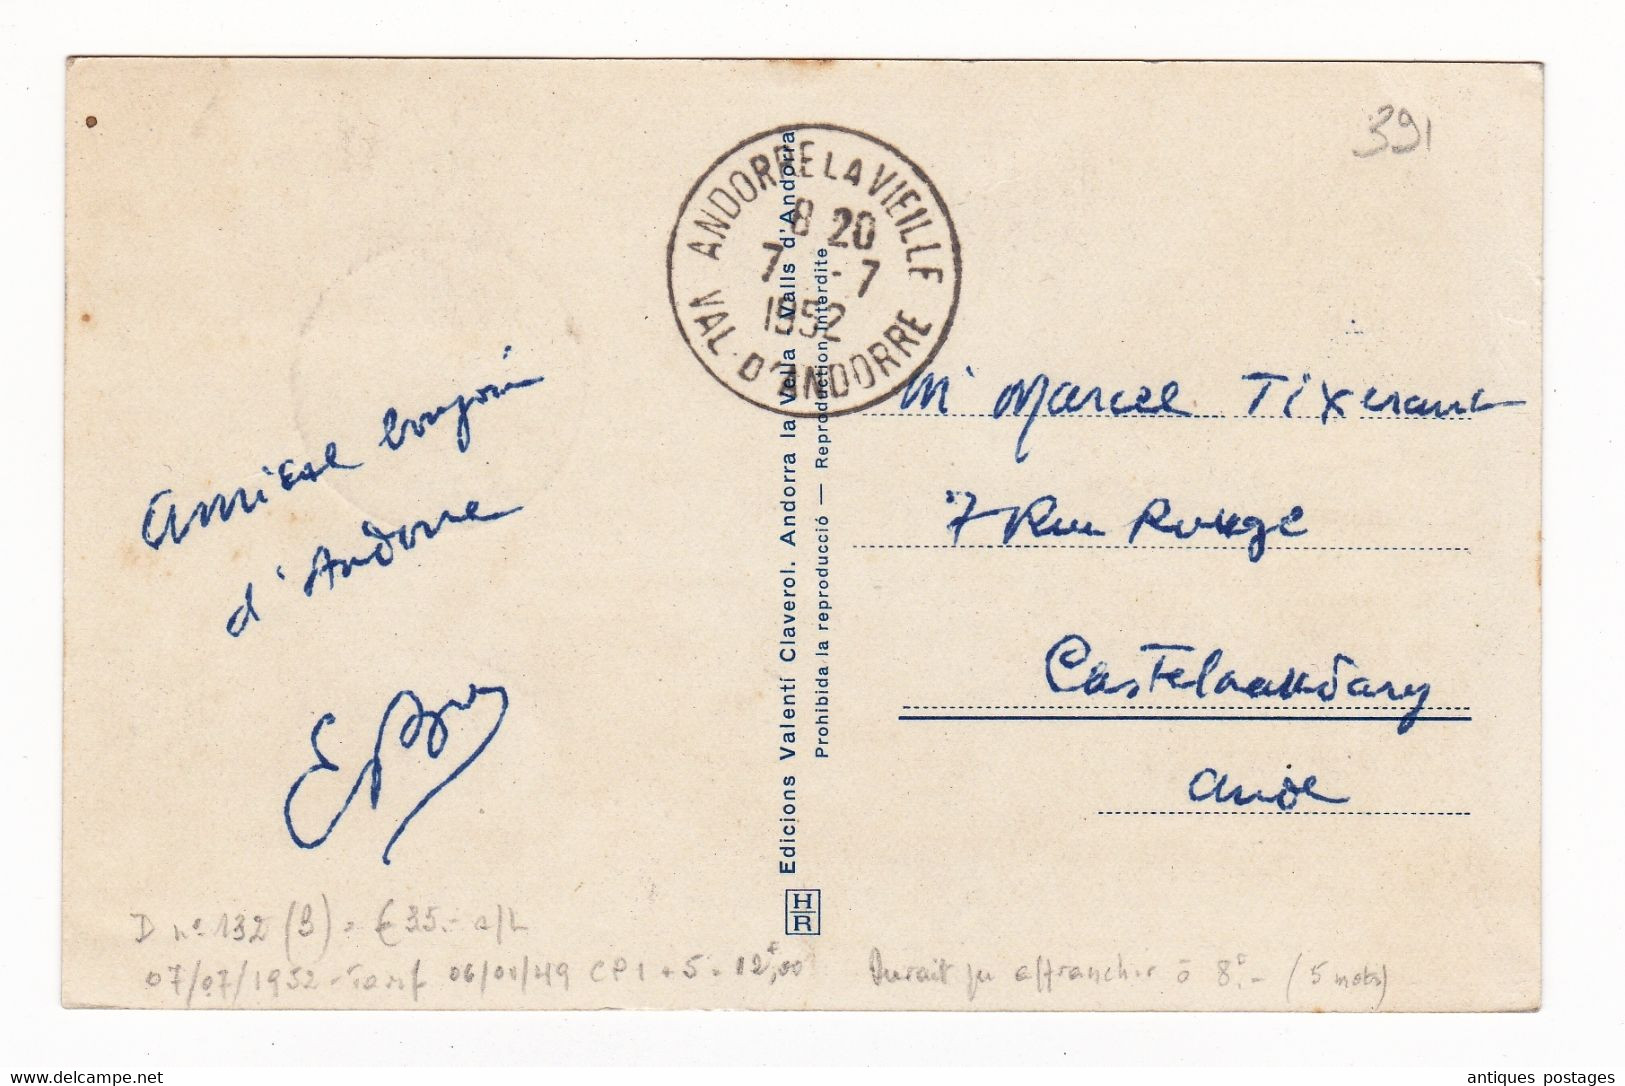 391
ANDORRE LA VIEILLE
8 20
7 - 7
1952
VAL D'ANDORRE
amical bonjour
d'Andorre
Edicions Valentí Claverol. Andorra la Vella (Valls d'Andorra
Prohibida la reproducció — Reproduction interdite
H
R
Mr Marcel Tixerant
7 Rue Rouge
Castelnaudary
Aude
D nº 132 (3) = € 35.- a/L
07/07/1952 - Tarif 06/01/49 CP 1 + 5 = 12F,00
Aurait pu affranchir à 8F.- (5 mots)
www.delcampe.net
antiques postages